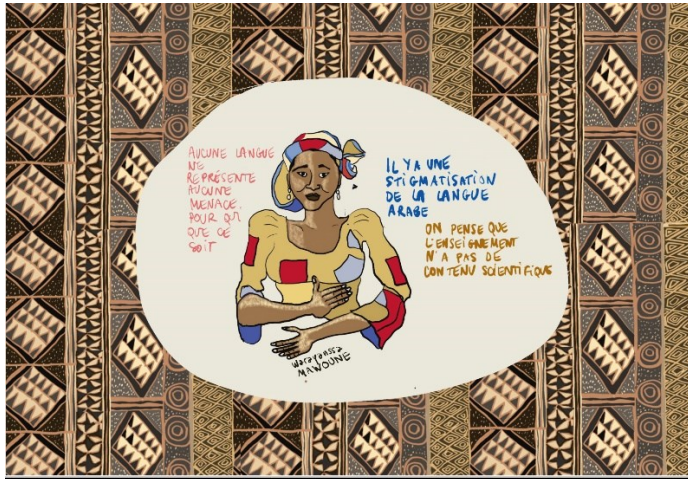 AUCUNE LANGUE
NE
REPRÉSENTE
AUCUNE
MENACE.
POUR QUI
QUE CE
SOIT
IL Y A UNE
STIGMATISATION
DE LA LANGUE
ARABE
ON PENSE QUE
L'ENSEIGNEMENT
N'A PAS DE
CONTENU SCIENTIFIQUE
MAWOUNE